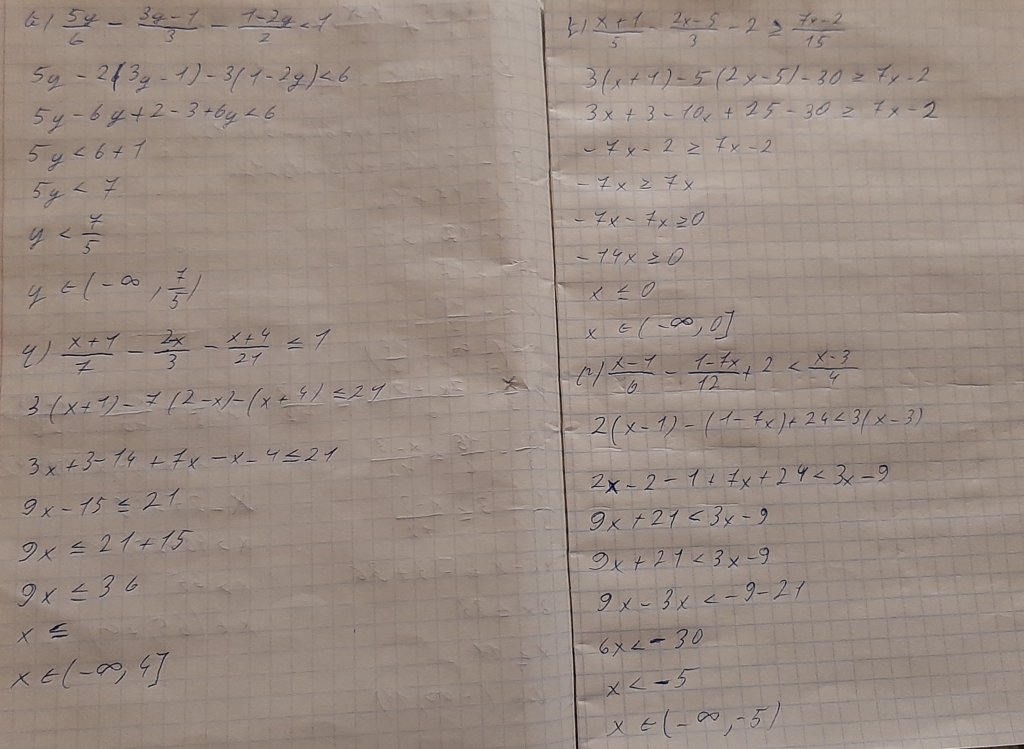 в) 5y/6 - 3y-1/3 - 1-2y/2 < 1
5y - 2(3y - 1) - 3(1 - 2y) < 6
5y - 6y + 2 - 3 + 6y < 6
5y < 6 + 1
5y < 7
y < 7/5
y ∈ (-∞, 7/5)
x+1/7 - 2x/3 - x+4/21 ≤ 1
3(x+1) - 7(2-x) - (x+4) ≤ 21
3x + 3 - 14 + 7x - x - 4 ≤ 21
9x - 15 ≤ 21
9x ≤ 21 + 15
9x ≤ 36
x ≤
x ∈ (-∞, 4]
x+1/5 - 2x-5/3 - 2 ≥ 7x-2/15
3(x+1) - 5(2x-5) - 30 ≥ 7x - 2
3x + 3 - 10x + 25 - 30 ≥ 7x - 2
-7x - 2 ≥ 7x - 2
-7x ≥ 7x
-7x - 7x ≥ 0
-14x ≥ 0
x ≤ 0
x ∈ (-∞, 0]
x-1/6 - 1-7x/12 + 2 < x-3/4
2(x-1) - (1-7x) + 24 < 3(x-3)
2x - 2 - 1 + 7x + 24 < 3x - 9
9x + 21 < 3x - 9
9x + 21 < 3x - 9
9x - 3x < -9 - 21
6x < -30
x < -5
x ∈ (-∞, -5)